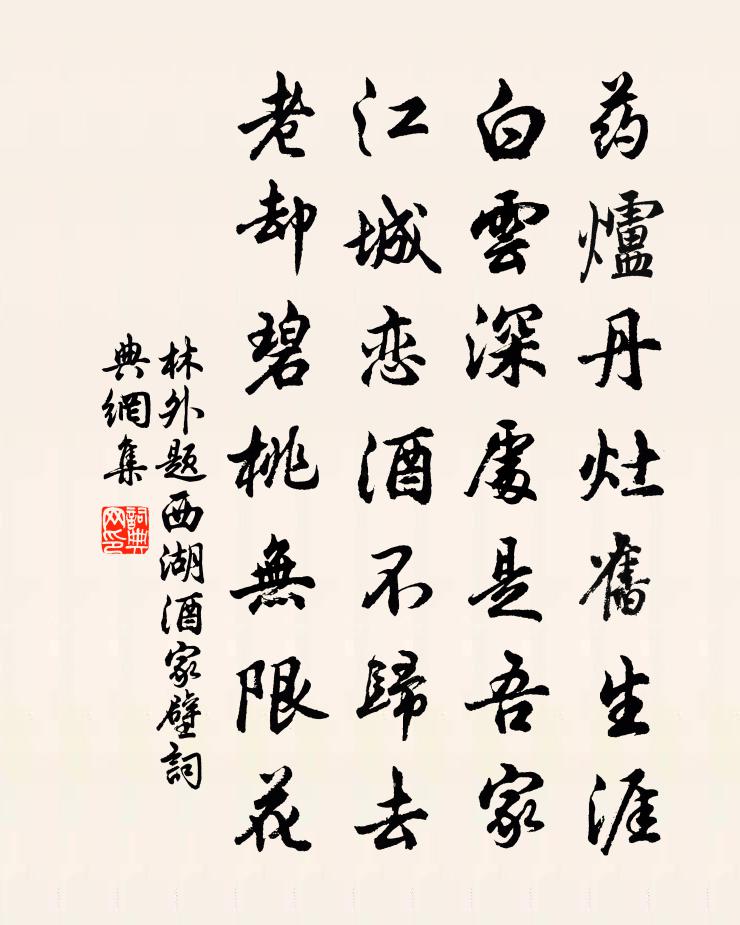 药爐丹灶舊生涯
白雲深處是吾家
江城恋酒不歸去
老却碧桃無限花
林外题西湖酒家壁詞
典網集
詞典網印